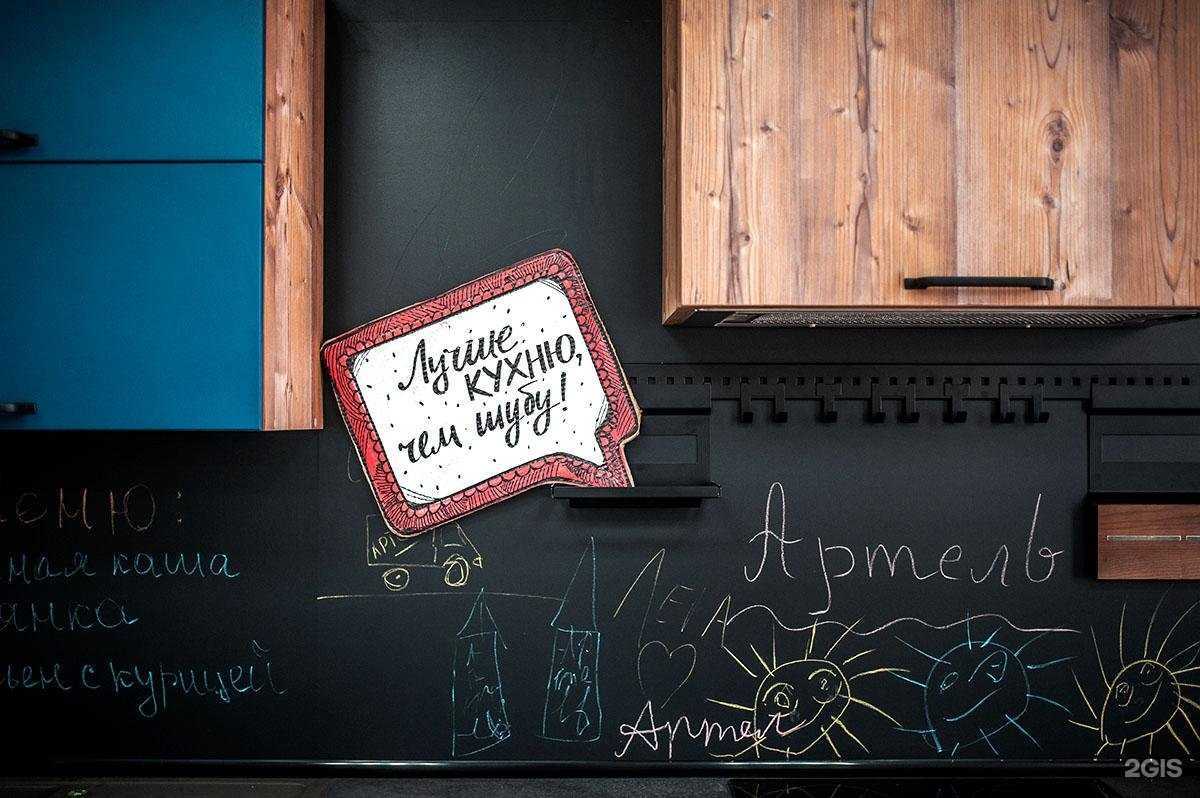 Лучше
КУХНЮ,
чем шубу!
еМЮ:
ная каша
янка
ьен с курицей
Артель
Лега
Артел
2GIS